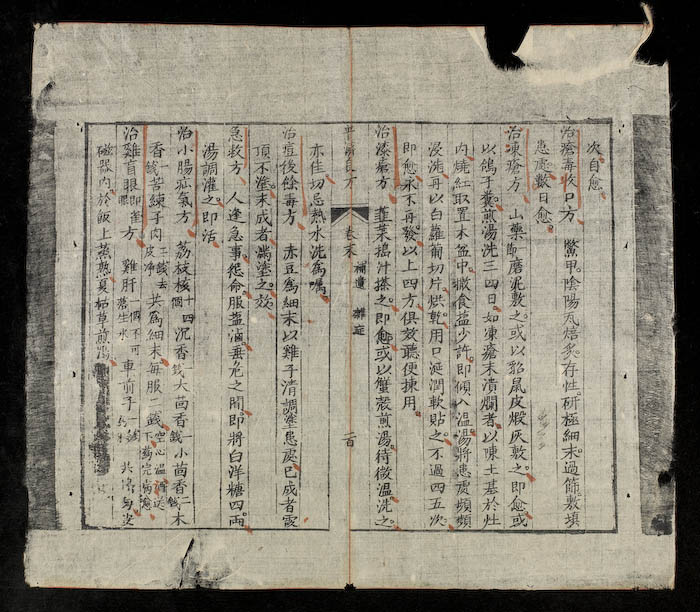 次自愈
治瘡毒收口方 鱉甲陰陽瓦焙炙存性研極細末過篩敷填
患處數日愈
治凍瘡方 山藥即磨泥敷之或以貂鼠皮煅灰敷之即愈或
以鴿子糞煎湯洗三四日如凍瘡末潰爛者以陳土基於灶
內燒紅取置木盆中撒食鹽少許即傾入溫湯將患處頻頻
浸洗再以白蘿蔔切片烘乾用口涎潤軟貼之不過四五次
即愈永不再發以上四方俱效聽便揀用
治漆瘡方 韮菜搗汁搽之即愈或以蟹殼煎湯待微溫洗之
普濟良方 卷末 補遺 雜症 一百
亦佳切忌熱水洗為囑
治痘後餘毒方 赤豆為細末以雞子清調塗患處已成者露
頂不塗未成者滿塗之效
急救方 人逢急事怨命服鹽滷垂危之間即將白洋糖四兩
湯調灌之即活
治小腸疝氣方 荔枝核十四個沉香一錢大茴香一錢小茴香二錢木
香一錢苦練子肉二錢去皮淨共為細末每服二錢空心溫酒送下
治雞盲眼即雀眼方 雞肝一個不可落生水車前子一錢共
磁器內於飯上蒸熟夏枯草煎湯